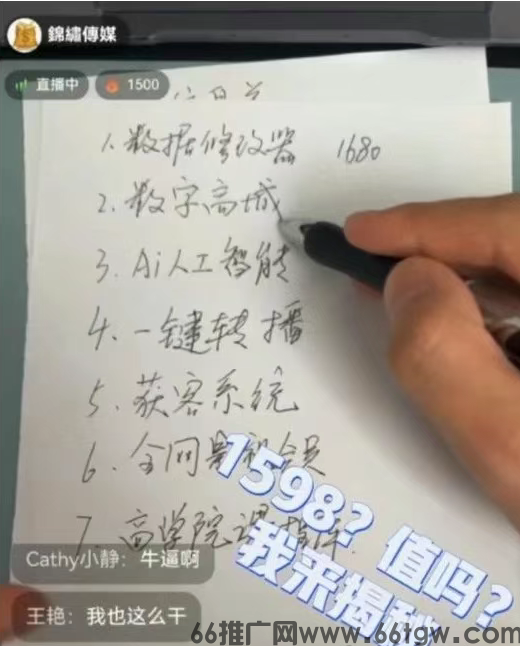 錦繡傳媒
直播中 1500
1. 数据修改器 1680
2. 数字商城
3. Ai人工智能
4. 一键转播
5. 获客系统
6. 全网影视会员
7. 商学院课
1598?值吗?
我来揭秘
Cathy小静：牛逼啊
王艳：我也这么干
66推广网www.66tgw.com